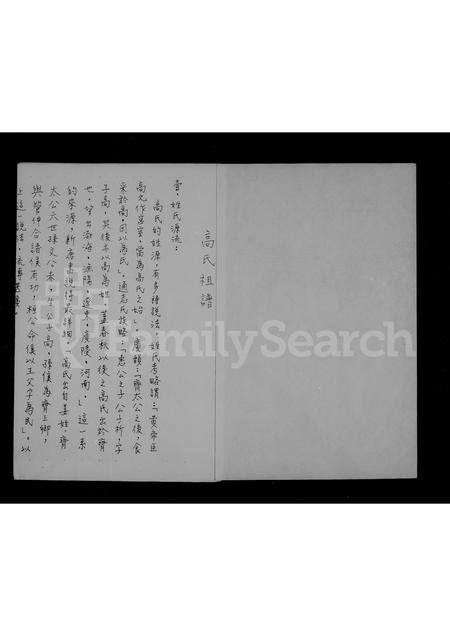 高氏祖譜
壹、姓氏源流：
高氏的姓源，有多種說法，姓氏考略謂：「黃帝臣
高元作宮室，當為高氏之始」。廣韻：「齊太公之後，食
采於高，因以為氏」。通志氏族略：「惠公之子公子祈，字
子高，其後亦以高為姓，蓋春秋以後之高氏出於齊
也，望出渤海，漁陽，遼東，廣陵，河南。」這一系
的來源，新唐書說得最詳細，高氏出自姜姓，齊
太公六世孫文公赤，生公子高，孫傒為齊上卿，
與管仲合諸侯有功，桓公命傒以王父字為氏」。以
上這一說法，
FamilySearch